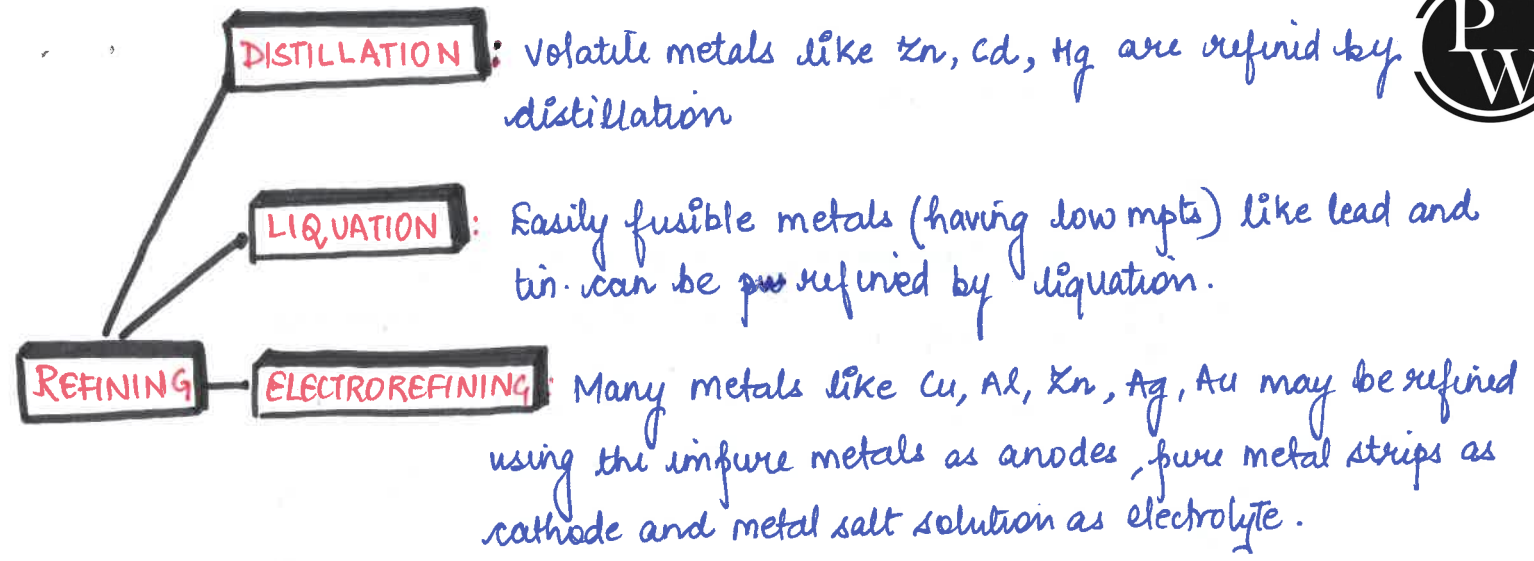 DISTILLATION : Volatile metals like Zn, Cd, Hg are refined by
distillation
PW
LIQUATION : Easily fusible metals (having low mpts) like lead and
tin. can be refined by liquation.
REFINING
ELECTROREFINING : Many metals like Cu, Al, Zn, Ag, Au may be refined
using the impure metals as anodes, pure metal strips as
cathode and metal salt solution as electrolyte.